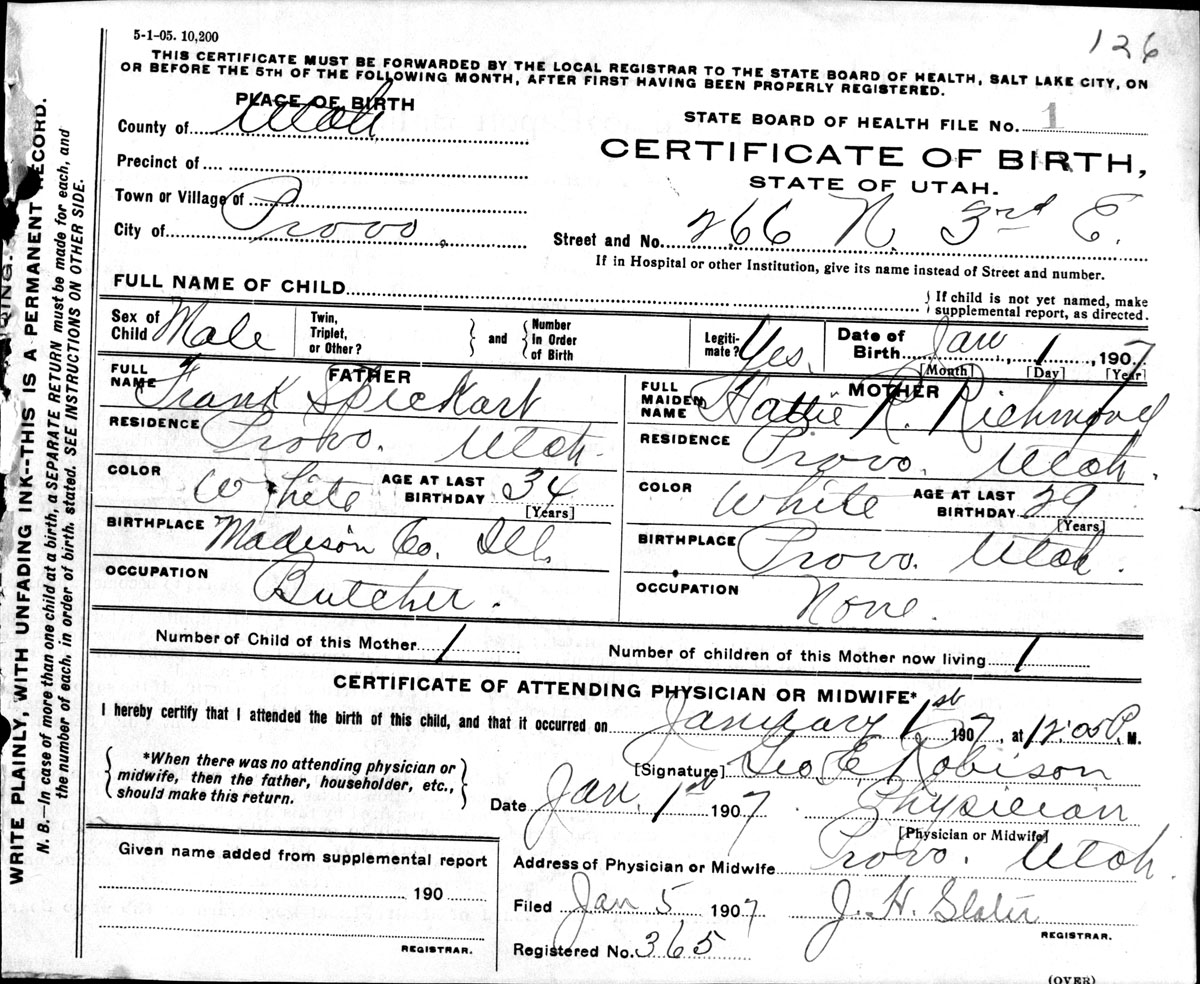 5-1-05. 10,200
126
THIS CERTIFICATE MUST BE FORWARDED BY THE LOCAL REGISTRAR TO THE STATE BOARD OF HEALTH, SALT LAKE CITY, ON
OR BEFORE THE 5TH OF THE FOLLOWING MONTH, AFTER FIRST HAVING BEEN PROPERLY REGISTERED.
PLACE OF BIRTH
County of Utah
Precinct of
Town or Village of
City of Provo.
STATE BOARD OF HEALTH FILE No. 1
CERTIFICATE OF BIRTH,
STATE OF UTAH.
Street and No. 266 N. 3rd E.
If in Hospital or other Institution, give its name instead of Street and number.
FULL NAME OF CHILD
If child is not yet named, make
supplemental report, as directed.
Sex of Child Male
Twin, Triplet, or Other?
and
Number In Order of Birth
Legiti-mate? Yes.
Date of Birth Jan 1, 1907
[Month] [Day] [Year]
FATHER
FULL NAME Frank Spieckart
RESIDENCE Provo. Utah.
COLOR White AGE AT LAST BIRTHDAY 34
[Years]
BIRTHPLACE Madison Co. Ill.
OCCUPATION Butcher.
MOTHER
FULL MAIDEN NAME Hattie R. Richmond
RESIDENCE Provo. Utah.
COLOR White AGE AT LAST BIRTHDAY 29
[Years]
BIRTHPLACE Provo. Utah.
OCCUPATION None.
Number of Child of this Mother 1
Number of children of this Mother now living 1
CERTIFICATE OF ATTENDING PHYSICIAN OR MIDWIFE*
I hereby certify that I attended the birth of this child, and that it occurred on January 1st 1907, at 12:05 P. M.
*When there was no attending physician or
midwife, then the father, householder, etc.,
should make this return.
[Signature] Geo E. Robison
Date Jan. 1st 1907. Physician
[Physician or Midwife]
Address of Physician or Midwife Provo. Utah.
Given name added from supplemental report
190
REGISTRAR.
Filed Jan 5, 1907 J. H. Slater
REGISTRAR.
Registered No. 365
(OVER)
WRITE PLAINLY, WITH UNFADING INK--THIS IS A PERMANENT RECORD.
N. B.—In case of more than one child at a birth, a SEPARATE RETURN must be made for each, and
the number of each, in order of birth, stated. SEE INSTRUCTIONS ON OTHER SIDE.